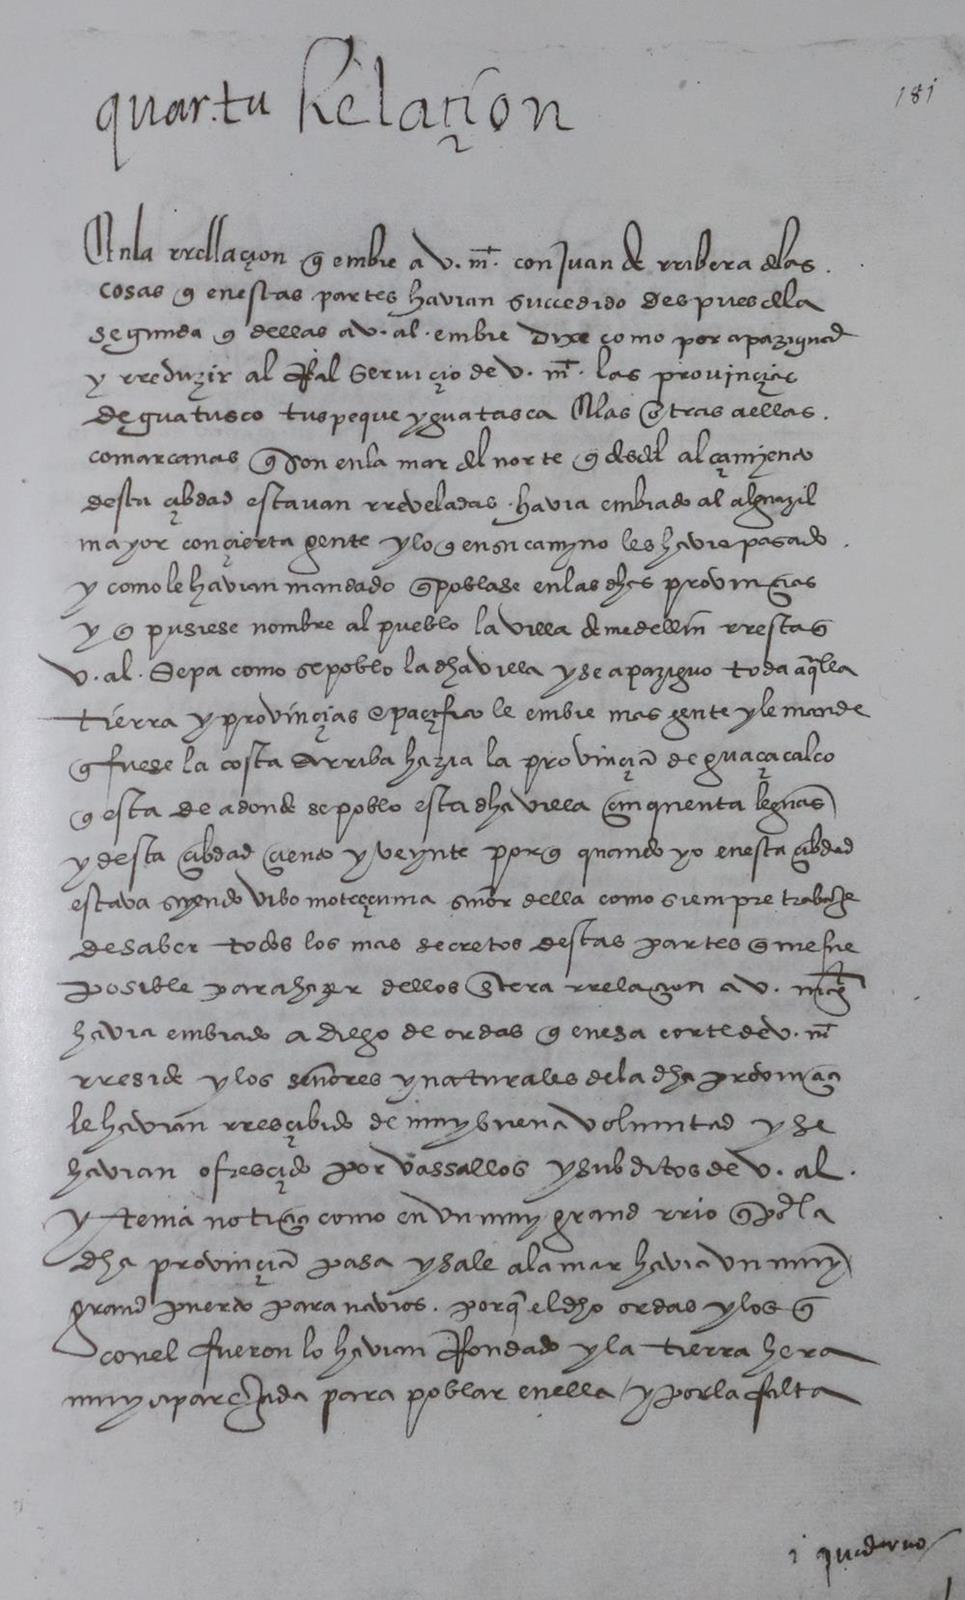 quarta Relaçion
181
Enla rrellaçion q̃ embie a v. mt. con Juan de rribera delas
cosas q̃ enestas partes havian succedido despues dela
segunda q̃ dellas a v. al. embie dixe como por apaziguar
y rreduzir al Real Serviçio de v. mt. las provinçias
de guatusco tuspeque y guatasca E las otras a ellas
comarcanas q̃ son enla mar del norte q̃ desdel alçamyento
desta çibdad estavan rreveladas. havia embiado al alguazil
mayor con çierta gente y lo q̃ en su camyno les havie pasado.
y como le havian mandado q̃ poblase en las dhas provinçias
y q̃ pusiese nombre al pueblo la villa de medellin rresta q̃
v. al. Sepa como se poblo la dha villa y se apaziguo toda aqlla
tierra y provinçias e paçifico le embie mas gente y le mande
q̃ fuese la costa arriba hazia la provinçia de guaçacalco
q̃ esta de adonde se poblo esta dha villa çinquenta leguas
y desta çibdad çiento y veynte por q̃ quando yo enesta çibdad
estava syendo vibo moteçuma señor della como siempre trabaje
de saber todos los mas secretos destas partes q̃ me fue
posible para hazer dellos entera rrelaçion a v. magt
havia embiado a diego de ordas q̃ enesa corte de v. mt
rreside y los señores y naturales de la dha provinçia
le havian rresçibido de muy buena voluntad y se
havian ofresçido por vassallos y subditos de v. al.
y tenia notiçia como en un muy grand rrio q̃ por la
dha provinçia pasa y sale ala mar havia un muy
grand puerto para navios. porq̃ el dho ordas y los q̃
conel fueron lo havian Rondado y la tierra hera
muy aparejada para poblar enella / y por la falta
i quaderno